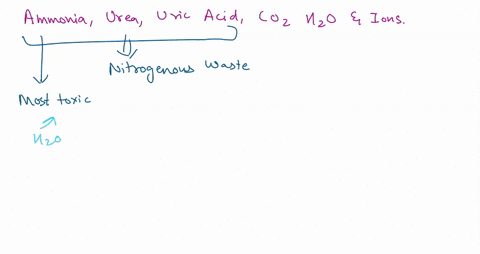 Ammonia, Urea, Uric Acid, CO2 H2O & Ions.
Nitrogenous Waste
Most toxic
H2O